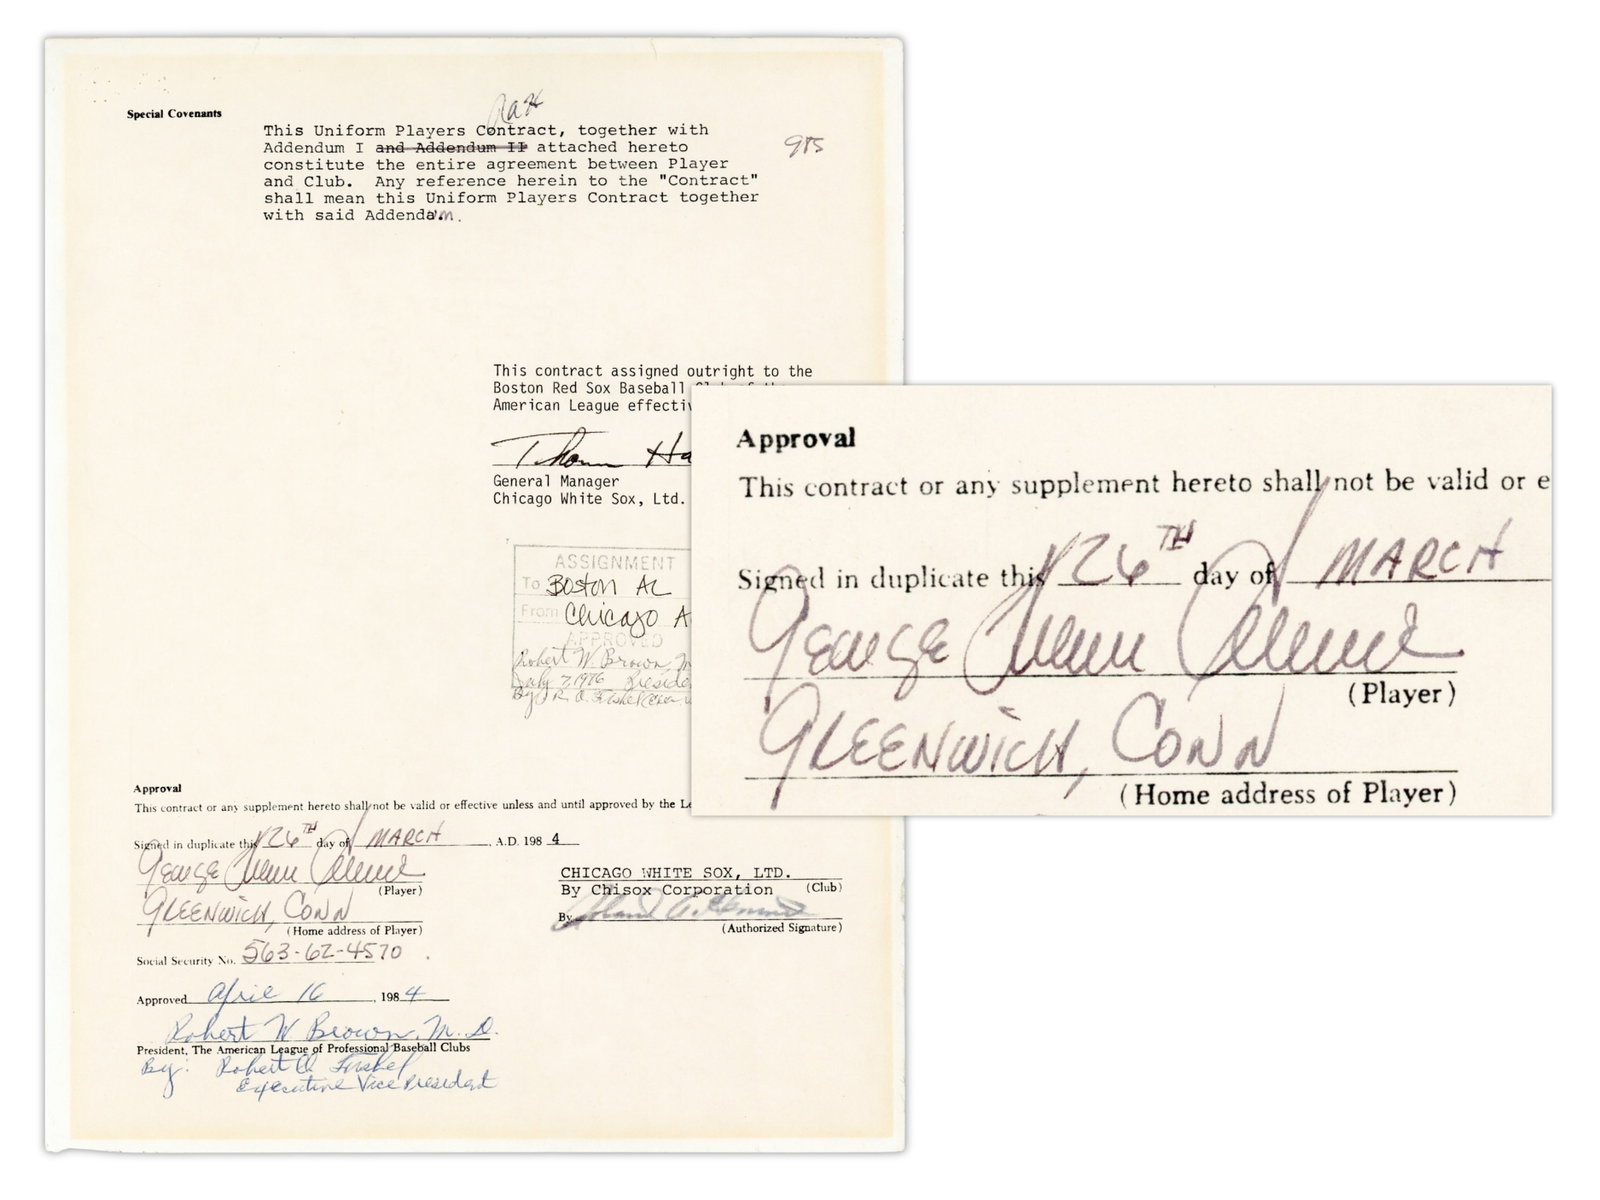 Special Covenants
This Uniform Players Contract, together with
985
Addendum I and Addendum II attached hereto
constitute the entire agreement between Player
and Club. Any reference herein to the "Contract"
shall mean this Uniform Players Contract together
with said Addendum.
This contract assigned outright to the
Boston Red Sox Baseball
American League
General Manager
Chicago White Sox, Ltd.
ASSIGNMENT
To Boston AL
From Chicago A
APPROVED
Robert W. Brown, M
July 7, 1986
Approval
This contract or any supplement hereto shall not be valid or effective unless and until approved by the
Signed in duplicate this 26TH day of MARCH, A.D. 1984
George
(Player)
GREENWICH, CONN
(Home address of Player)
Social Security No. 563-62-4570
Approved April 16, 1984
Robert W Brown, M.D.
President, The American League of Professional Baseball Clubs
By: Robert O. Fishel
Executive Vice President
CHICAGO WHITE SOX, LTD.
By Chisox Corporation (Club)
By
(Authorized Signature)
Approval
This contract or any supplement hereto shall not be valid or e
Signed in duplicate this 26TH day of MARCH
George
(Player)
GREENWICH, CONN
(Home address of Player)